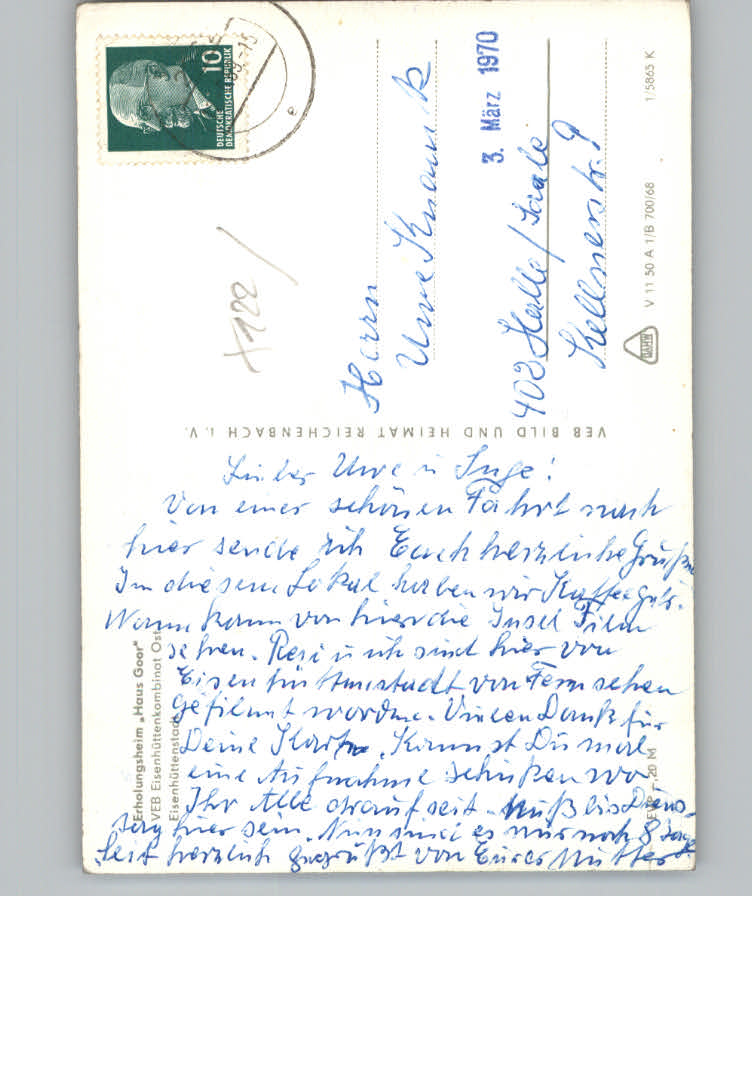 Lieber Uwe u Inge!
Von einer schönen Fahrt nach
hier sende ich Euch herzliche Grüße
Im diesem Lokal haben wir Kaffee getr.
Wann kann von hier die Insel Film
sehen. Resi u ich sind hier von
Eisenhüttenstadt von Fernsehen
gefilmt worden. Vielen Dank für
Deine Karte. Kannst Du mal
eine Aufnahme schicken wo
Ihr Alle drauf seit. Muß bis Diens-
tag hier sein. Nun sind es nur noch 8 Tage
Seit herzlich gegrüßt von Eurer Mutter
Erholungsheim „Haus Goor"
VEB Eisenhüttenkombinat Ost
Eisenhüttenstadt
EVP -,20 M
VEB BILD UND HEIMAT REICHENBACH i. V.
10
DEUTSCHE
DEMOKRATISCHE REPUBLIK
e
X122/
Herrn
Uwe Knauck
3. März 1970
402 Halle/Saale
Kellnerstr. 9
DAHW
V 11 50 A 1/B 700/68
1/5865 K